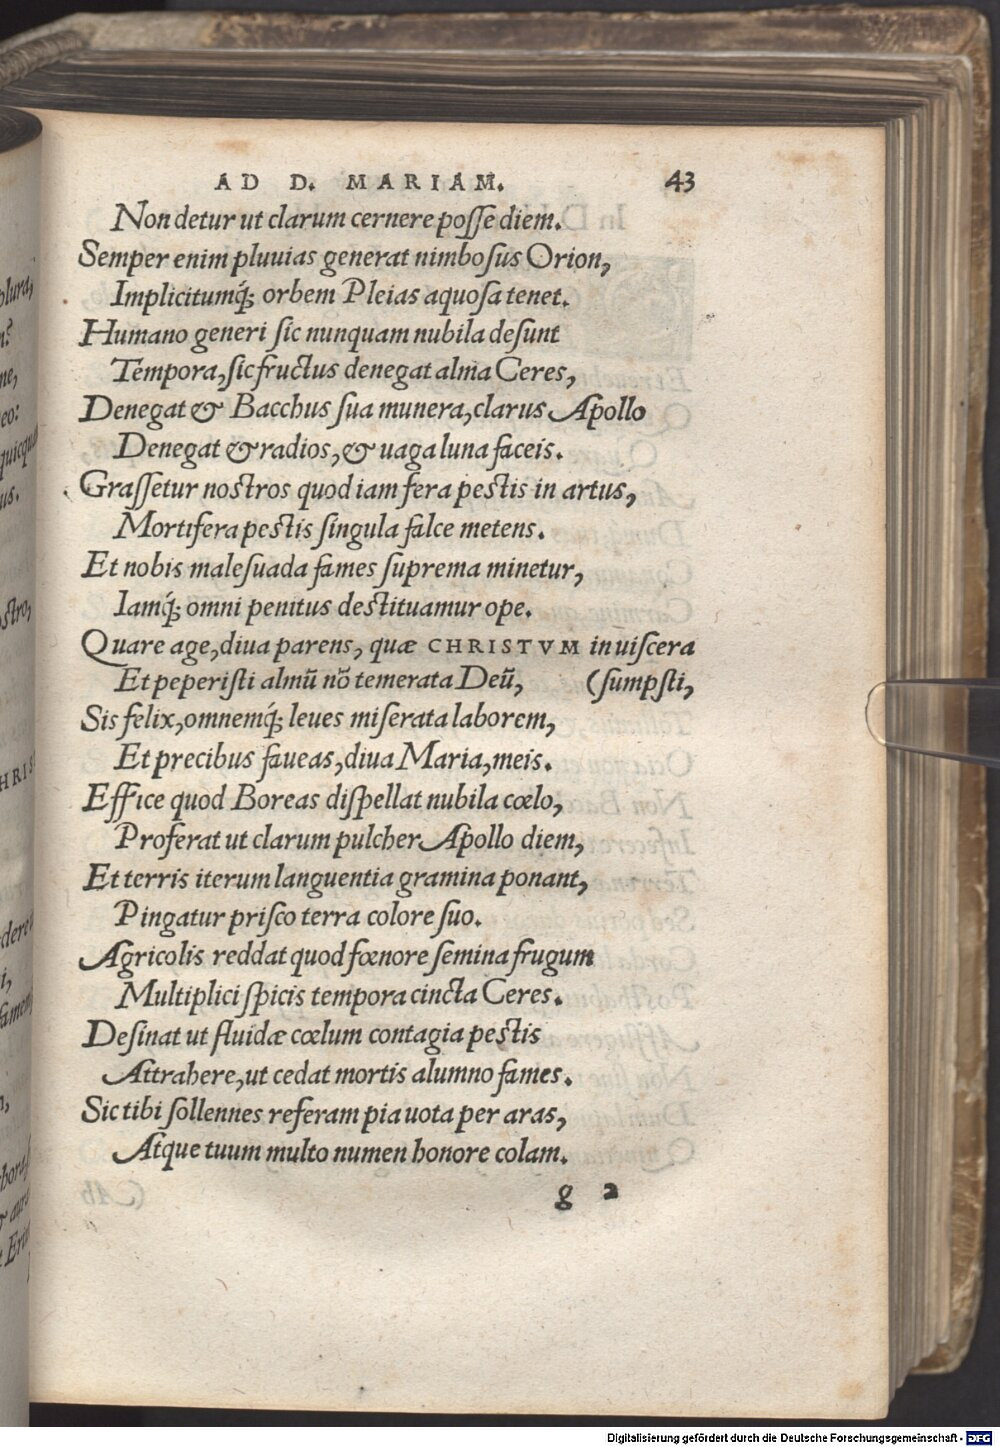 AD D. MARIAM. 43
Non detur ut clarum cernere posse diem.
Semper enim pluuias generat nimbosus Orion,
Implicitumq́; orbem Pleias aquosa tenet.
Humano generi sic nunquam nubila desunt
Tempora, sic fructus denegat alma Ceres,
Denegat & Bacchus sua munera, clarus Apollo
Denegat & radios, & uaga luna faceis.
Grassetur nostros quod iam fera pestis in artus,
Mortifera pestis singula falce metens.
Et nobis malesuada fames suprema minetur,
Iamq́; omni penitus destituamur ope.
Quare age, diua parens, quæ CHRISTVM in uiscera
Et peperisti almũ nõ temerata Deũ, (sumpsti,
Sis felix, omnemq́; leues miserata laborem,
Et precibus faueas, diua Maria, meis.
Effice quod Boreas dispellat nubila cœlo,
Proferat ut clarum pulcher Apollo diem,
Et terris iterum languentia gramina ponant,
Pingatur prisco terra colore suo.
Agricolis reddat quod fœnore semina frugum
Multiplici spicis tempora cincta Ceres.
Desinat ut fluidæ cœlum contagia pestis
Attrahere, ut cedat mortis alumno fames.
Sic tibi sollennes referam pia uota per aras,
Atque tuum multo numen honore colam.
g 2
Digitalisierung gefördert durch die Deutsche Forschungsgemeinschaft - DFG